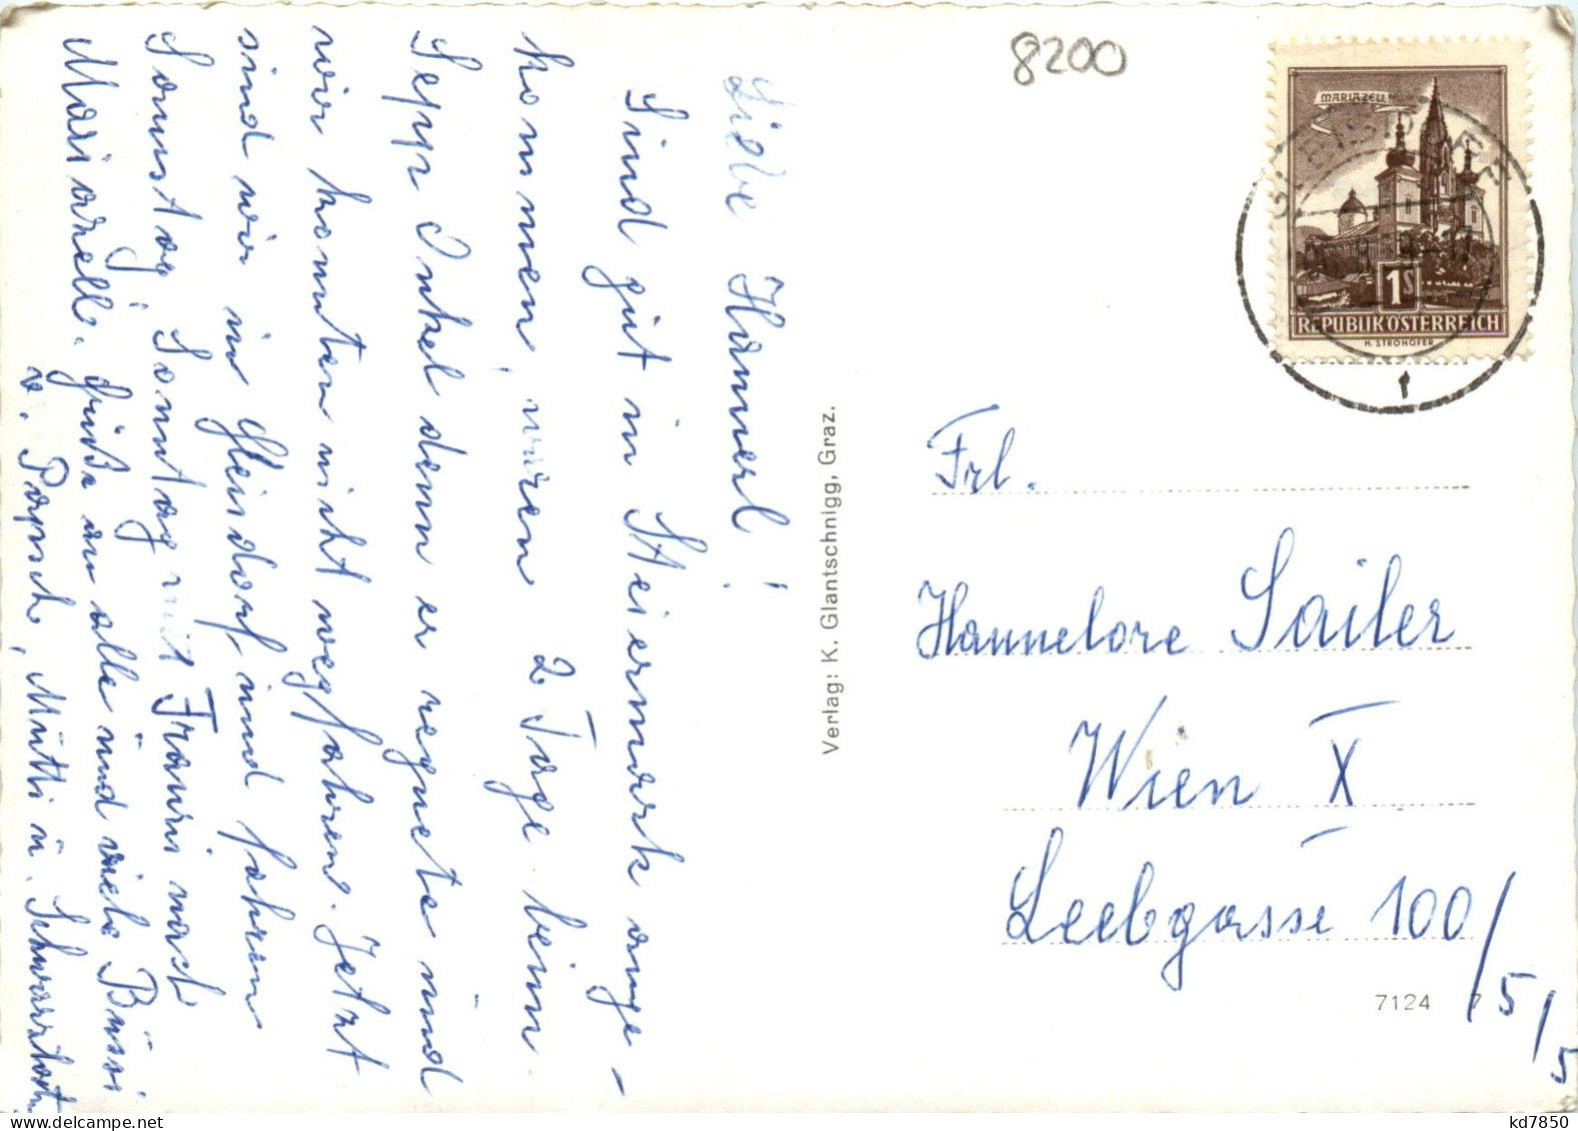 8200
MARIAZELL
1S
REPUBLIK ÖSTERREICH
H. STROHOFER
Liebe Hannerl!
Sind gut in Steiermark ange-
kommen, waren 2 Tage beim
Sepp Onkel denn er regnete und
wir konnten nicht wegfahren. Jetzt
sind wir in Gleisdorf und fahren
Samstag, Sonntag mit Franzi nach
Mariazell. Grüße an alle und viele Bussi
v. Papsch, Mutti u.
Verlag: K. Glantschnigg, Graz.
Frl.
Hannelore Sailer
Wien X
Leebgasse 100/5/5
7124 7
kd7850